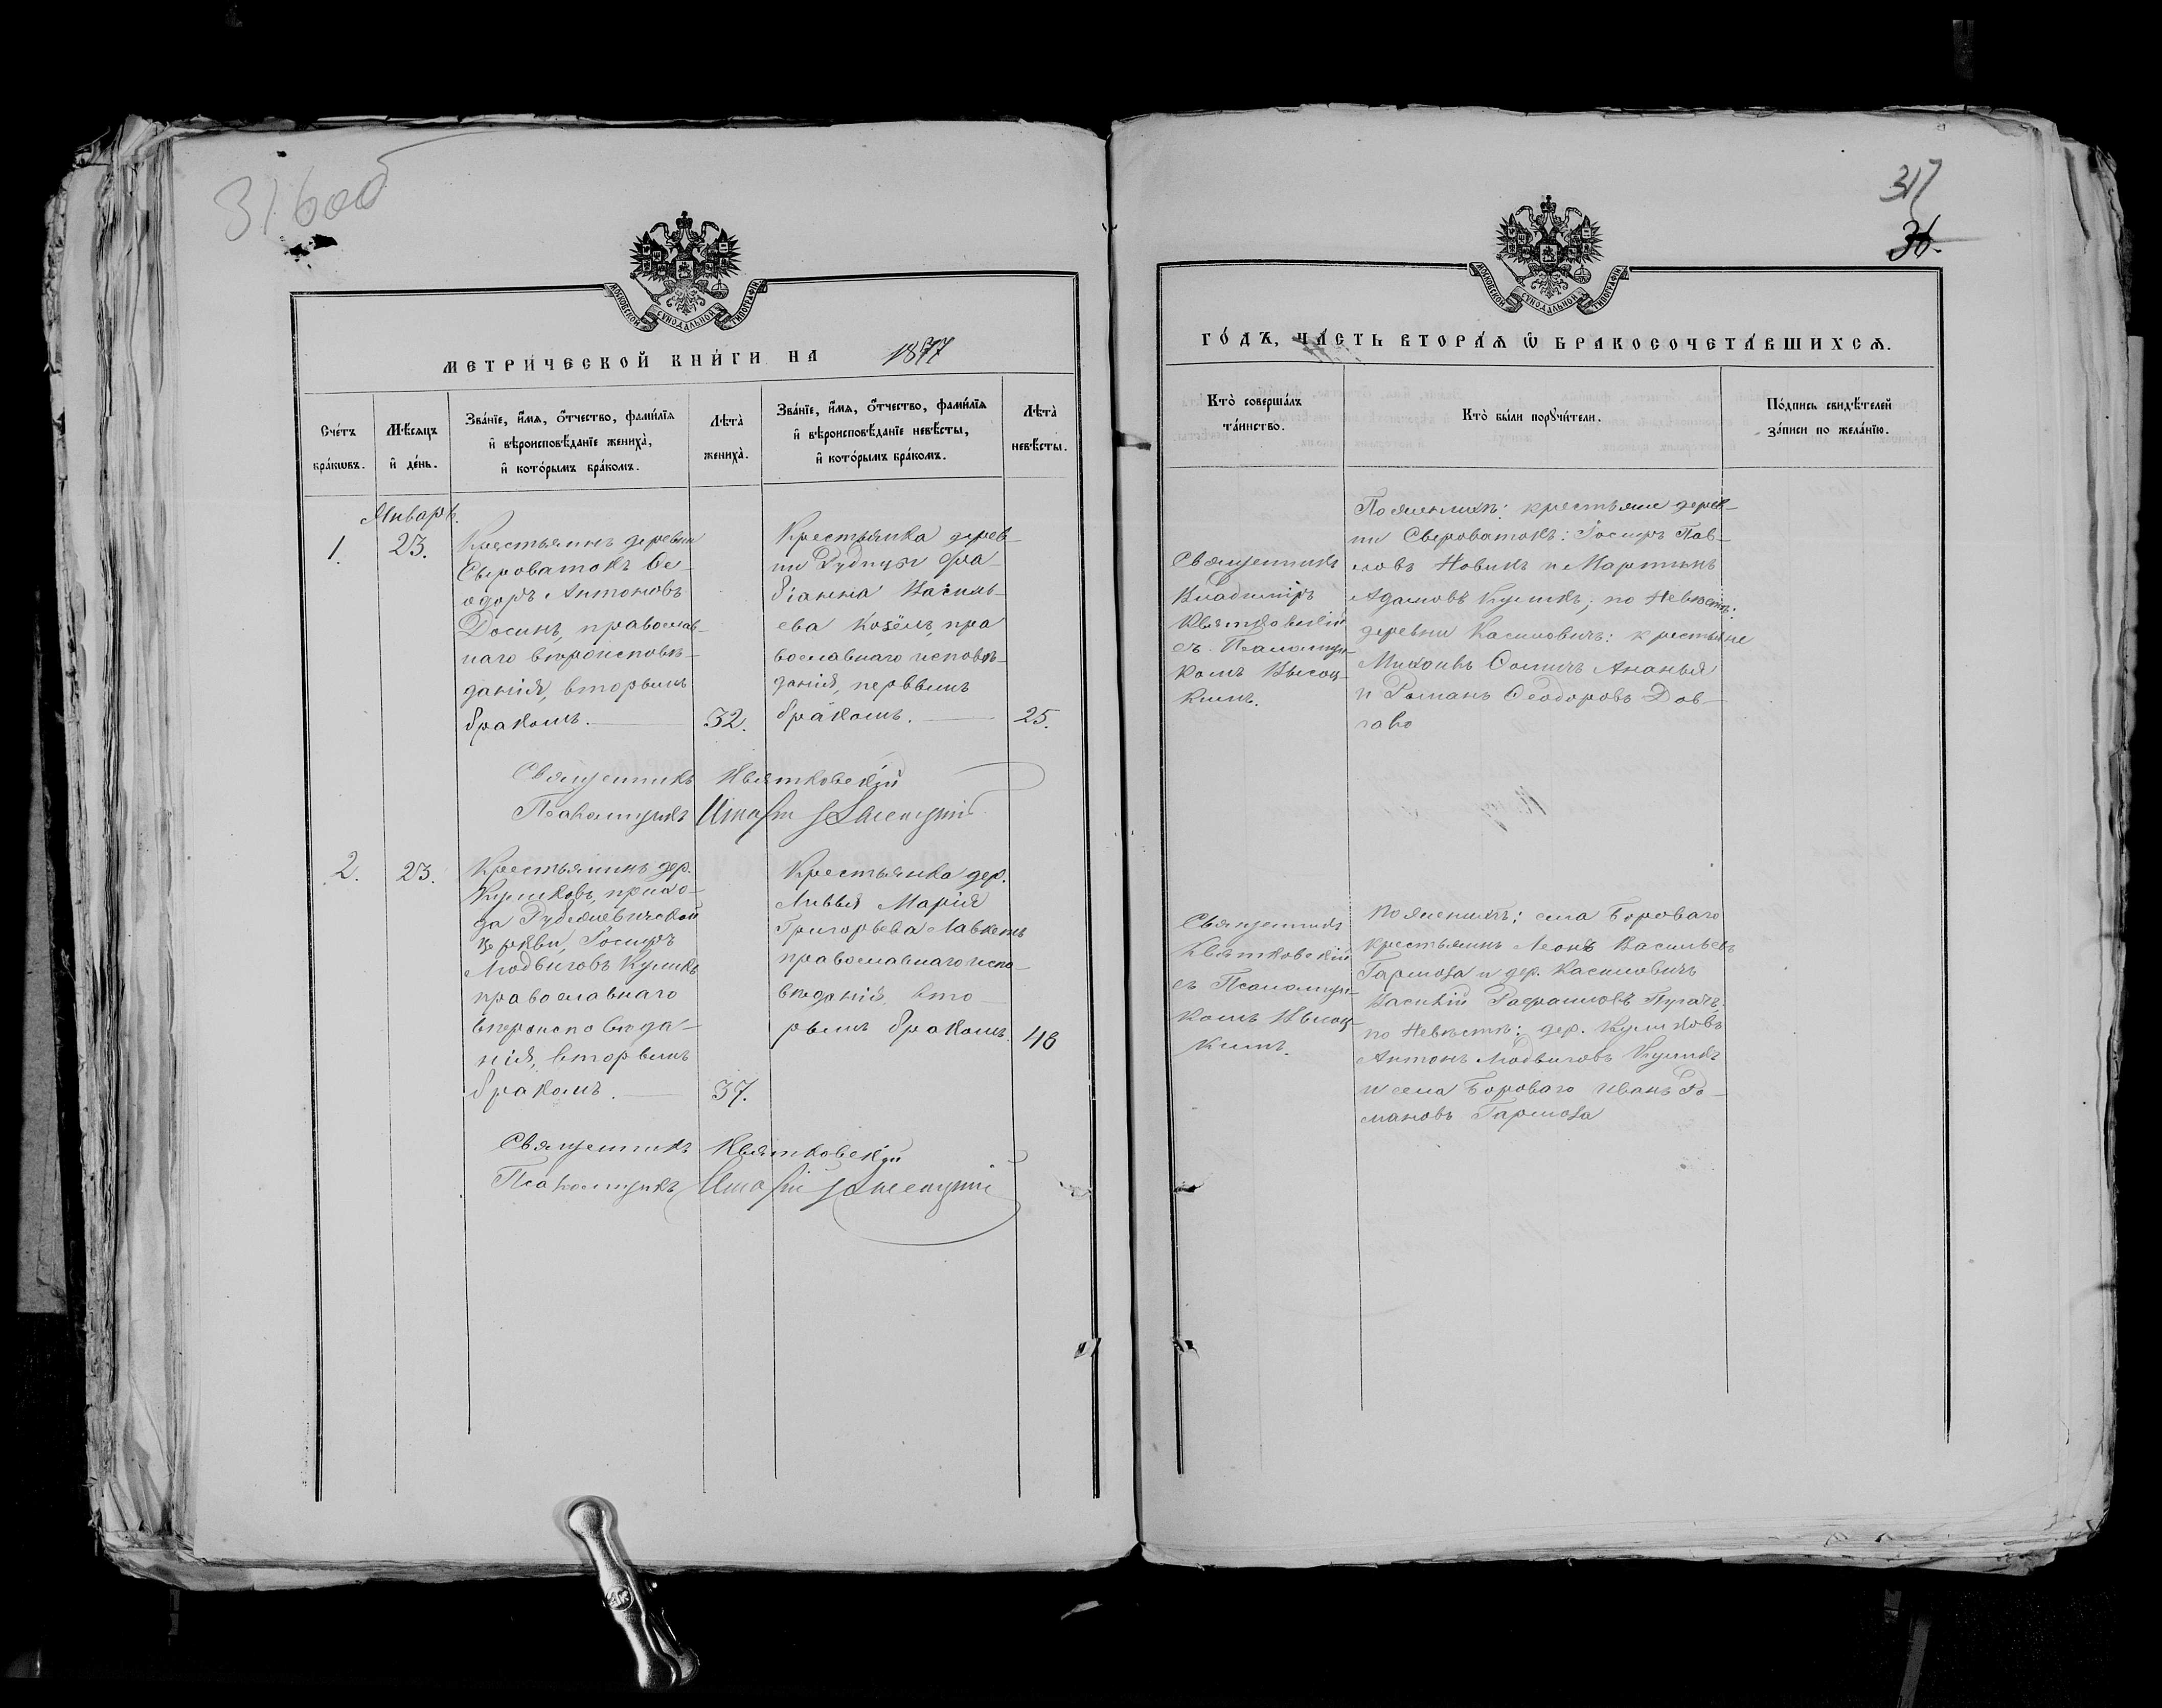 316 об
МОСКОВСКОЙ СѴНОДАЛЬНОЙ ТИПОГРАФІИ
МЕТРИЧЕСКОЙ КНИ́ГИ НА 1877
Сче́тъ бра́кѡвъ.
Мѣ́сяцъ и҆ де́нь.
Зва́нїе, и҆́мѧ, ѻ҆́тчество, фами́лїѧ
и҆ вѣроисповѣ́данїе жениха̀,
и҆ кото́рымъ бра́комъ.
Лѣта̀ жениха̀.
Зва́нїе, и҆́мѧ, ѻ҆́тчество, фами́лїѧ
и҆ вѣроисповѣ́данїе невѣ́сты,
и҆ кото́рымъ бра́комъ.
Лѣта̀ невѣ́сты.
Январь.
1.
23.
Крестьянинъ деревни
Сыроватокъ Ѳе-
одоръ Антоновъ
Досинъ, православ-
наго вѣроисповѣ-
данія, вторымъ
бракомъ.
32.
Крестьянка дерев-
ни Рудни
Василь-
ева Козёлъ, пра
вославнаго исповѣ-
данія, первымъ
бракомъ.
25.
Священникъ Квятковскій
Псаломщикъ
2.
23.
Крестьянинъ дер.
Куликовъ, прихо-
да
церкви, Іосифъ
Людвиговъ Куликъ
православнаго
вѣроисповѣда-
нія, вторымъ
бракомъ.
37.
Крестьянка дер.
Марія
Григорьева
православнаго испо-
вѣданія, вто-
рымъ бракомъ.
48
Священникъ Квятковскій
Псаломщикъ
317
36.
МОСКОВСКОЙ СѴНОДАЛЬНОЙ ТИПОГРАФІИ
ГО́ДЪ, ЧА́СТЬ ВТОРА́Ѧ Ѡ҆ БРАКОСОЧЕТА́ВШИХСѦ.
Кто̀ соверша́лъ
та́инство.
Кто̀ бы́ли порꙋчи́тели.
По́дпись свидѣ́телей
за́писи по жела́нїю.
Священникъ
Владиміръ
Квятковскій
съ Псаломщи-
комъ Высоц-
кимъ.
По женихѣ: крестьяне дерев-
ни Сыроватокъ: Іосифъ Пав-
ловъ Новикъ и Мартинъ
Адамовъ Куликъ; по невѣстѣ:
деревни Касиловичъ: крестьяне
Ананья
и Романъ Ѳеодоровъ Дов-
Священникъ
Квятковскій
съ Псаломщи-
комъ Высоц-
кимъ.
По женихѣ: села Бороваго
крестьянинъ Леонъ Васильевъ
Гармоза и дер. Касиловичъ
Василій Пугачъ,
по невѣстѣ: дер. Куликовъ
Антонъ Людвиговъ Куликъ
и села Бороваго Иванъ Ро-
мановъ Гармоза